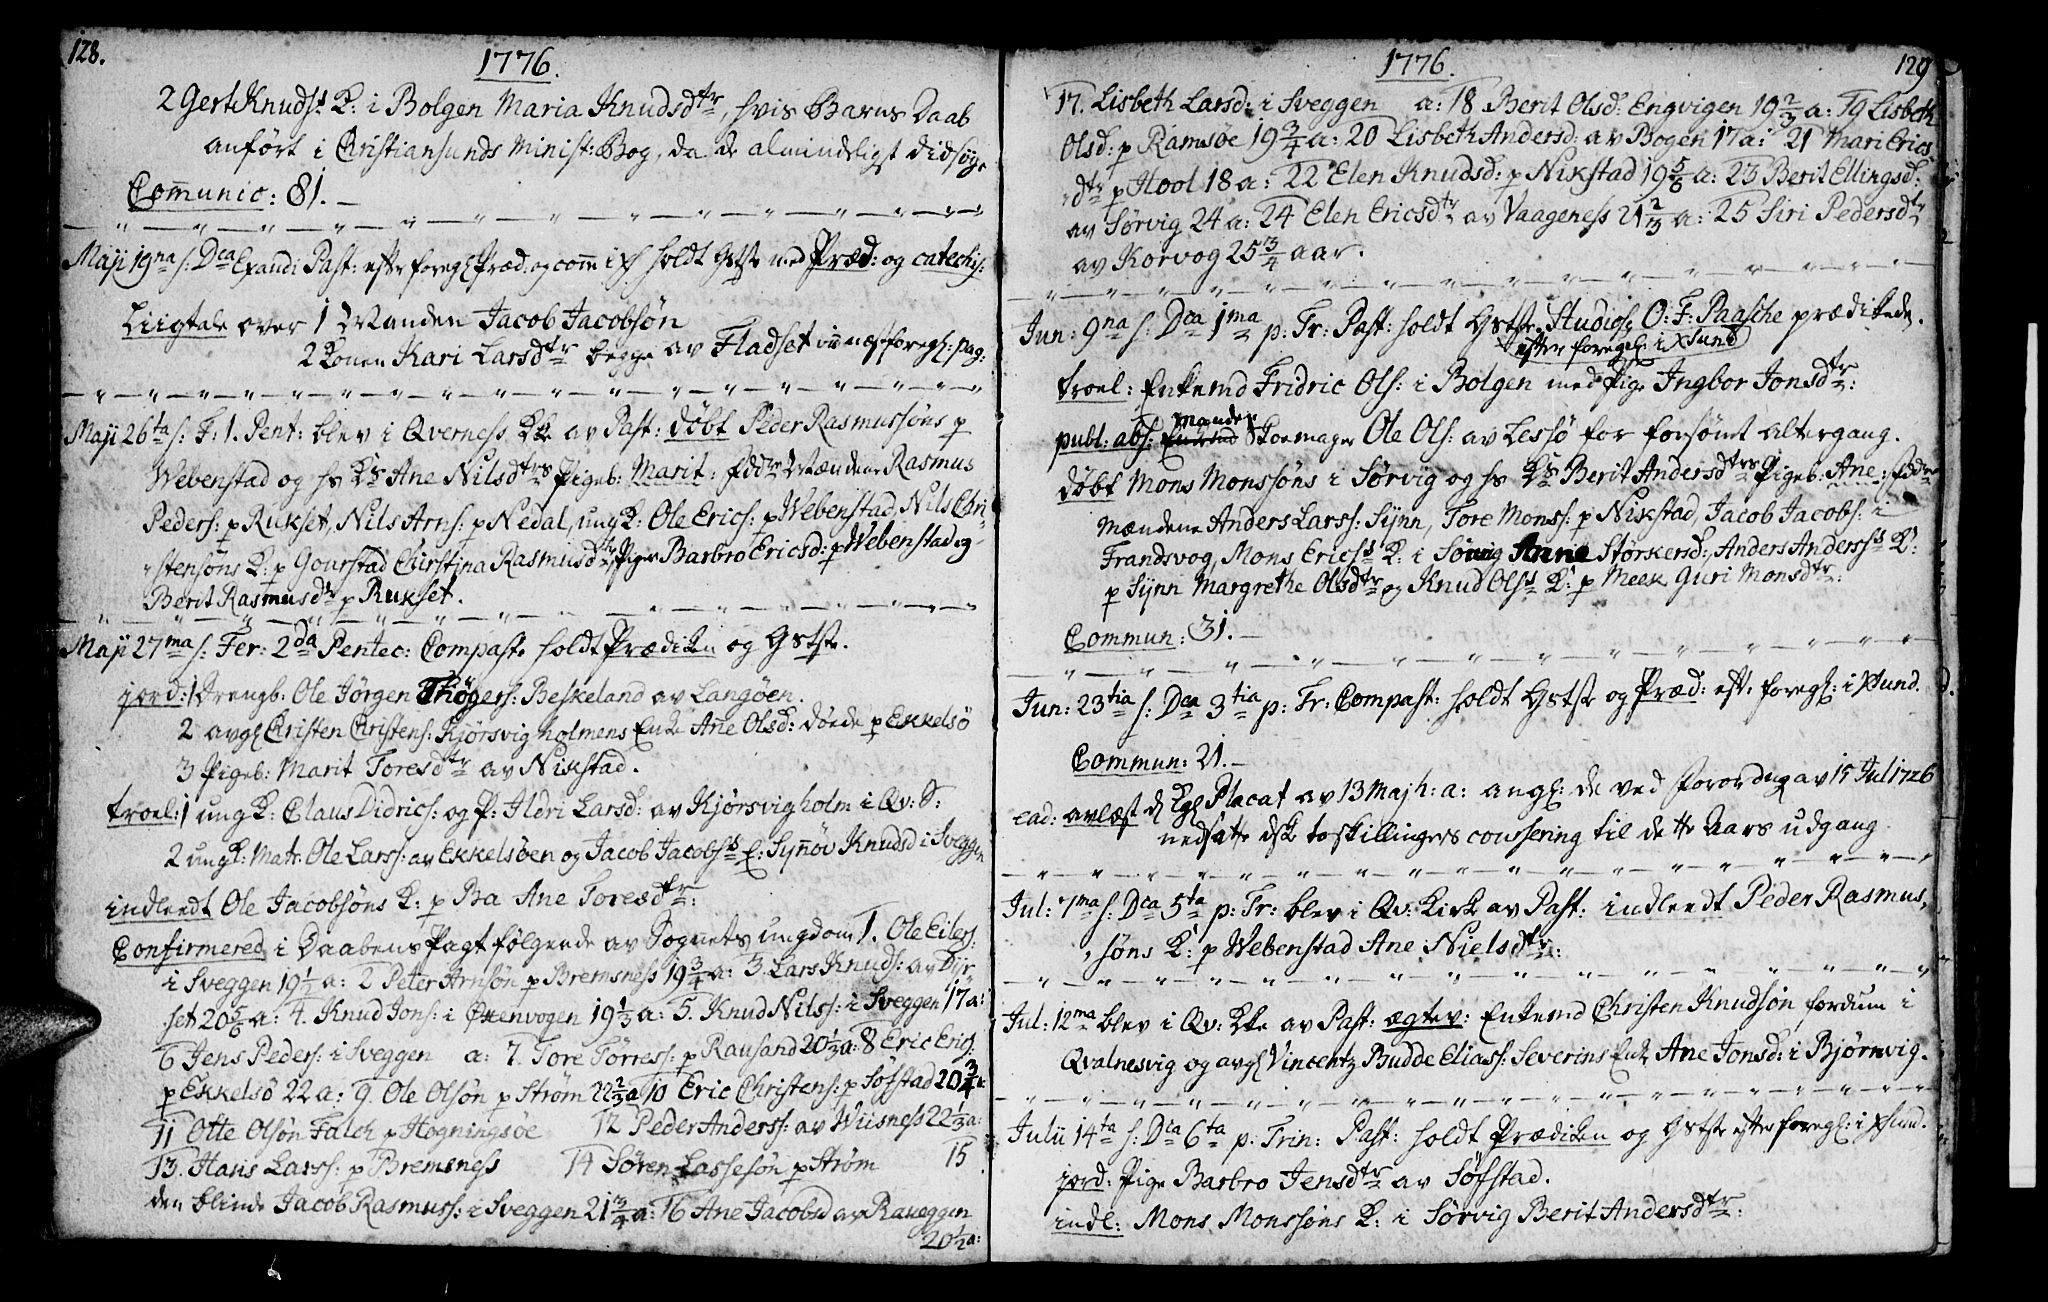 128.
1776.
2 Gert Knuds: K: i Bolgen Maria Knudsdtr, hvis Barns Daab
anført i Christiansunds Minist: Bog, da de almindeligst didsøge
Communic: 81.
Maji 19na s: Dca Exaudi Past: efter foregl Præd. og comm i Xs holdt Gstste med Præd: og catechis:
Liigtale over 1 Manden Jacob Jacobsøn
2 Konen Kari Larsdtr begge av Fladset næstforegl: pag:
Maji 26ta s: F: 1. Pent: blev i Qverness Kke av Past: døbt Peder Rasmussøns p
Webenstad og hs Ks Ane Nilsdtrs Pigeb: Marit: fddre Mændene Rasmus
Peders: p Rukset, Nils Arns: p Nedal, ungK: Ole Erics: p Webenstad, Nils Chri-
stensøns K: p Gourstad Chirstjna Rasmusdtr Piger Barbro Ericsd: p Webenstad og
Berit Rasmusdtr p Rukset.
Maji 27ma s: Fer: 2da Pentec: Compastr holdt Prædiken og Gstste.
jord: 1 Drengb: Ole Jørgen Thøgers: Beskeland av Langøen.
2 avgl Christen Christens: Kjørsvigholmens Enke Ane Olsd: døede p Ekkelsø
3 Pigeb: Marit Toresdtr av Nikstad.
troel: 1 ungK: Claus Didrics: og P: Ildri Larsd: av Kjørsvigholm i Qv: S:
2 ungK: Matr. Ole Lars: av Ekkelsøen og Jacob Jacobss E: Synnøv Knudsd i Sveggen
indleedt Ole Jacobsøns K: p Ba Ane Toresdtr:
Confirmered i Daabens Pagt følgende av Sognets ungdom 1. Ole Eilers:
i Sveggen 19½ a: 2 Peter Arnsøn p Bremsness 19¾ a: 3. Lars Knuds: av Dijr
set 20 5/6 a: 4. Knud Jons: i Øxenvogen 19⅓ a: 5. Knud Nils: i Sveggen 17 a:
6 Jens Peders: i Sveggen a: 7. Tore Tørress: p Rausand 20⅓ a: 8 Eric Erig:
p Ekkelsø 22 a: 9. Ole Olsøn p Strøm 22⅔ a 10 Eric Christens: p Søfstad 20¾
11 Otte Olsøn Falch p Hogningsøe 12 Peder Anderss: av Wiisness 22½ a:
13. Hans Larss: p Bremsness 14 Søren Lassesøn p Strøm 15
den blinde Jacob Rasmuss: i Sveggen 21¾ a: 16 Ane Jacobsd av Raveggen
20½ a:
1776.
129
17. Lisbeth Larsd: i Sveggen a: 18 Berit Olsd: Engvigen 19⅔ a: 19 Lisbeth
Olsd: p Ramsøe 19¾ a: 20 Lisbeth Andersd: av Bogen 17 a: 21 Mari Erics
dtr p Hool 18 a: 22 Elen Knudsd: p Nikstad 19 5/6 a: 23 Berit Ellingsd:
av Sørvig 24 a: 24 Elen Ericsdtr av Vaageness 21⅔ a: 25 Siri Pedersdtr
av Korvog 25¾ aar.
Jun: 9na s: Dca 1ma p: Tr: Past: holdt Gstste, Studios: O: F: Paasche prædikede.
efter foregl: i Xsund
troel: Enkemd Fridric Ols: i Bolgen med Pige Ingbor Jonsdtr:
manden
publ: abs: Skoemager Ole Ols: av Lessø for forsømt altergang.
døbt Mons Monssøns i Sørvig og hs Ks Berit Andersdtrs Pigeb: Ane: fddre
Mændene Anders Larss: Synn, Tore Monss: p Nikstad, Jacob Jacobs: i
Frandsvog, Mons Ericss K: i Sørvig Anne Størkersd: Anders Anderss K:
p Synn Margrethe Olsdtr og Knud Olss K: p Meek Guri Monsdtr:
Commun: 31.
Jun: 23tia s: Dca 3tia p: Tr: Compast: holdt Gstste og Præd: eft. foregl: i Xsund.
Commun: 21.
ead: avlæst d Kgl Placat av 13 Maj h: a: angl: de ved Forordng av 15 Jul 1726
nedsatte dsk toskillingers coursering til dette Aars udgang
Jul: 7ma s: Dca 5ta p: Tr: blev i Qv: Kirke av Past: indleedt Peder Rasmus,
søns K: p Webenstad Ane Nielsdtr:
Jul: 12ma blev i Qv: Kke av Past: ægtev: Enkemd Christen Knudsøn fordum i
Qvalnesvig og avgl Vincentz Budde Eliass: Severins Enke Ane Jonsd: i Bjørnvig.
Julii 14ta s: Dca 6ta p: Trin: Past: holdt Prædiken og Gstste efter foregl: i Xsund.
jord: Pige Barbro Jensdtr av Søfstad.
indl: Mons Monssøns K: i Sørvig Berit Andersdtr: